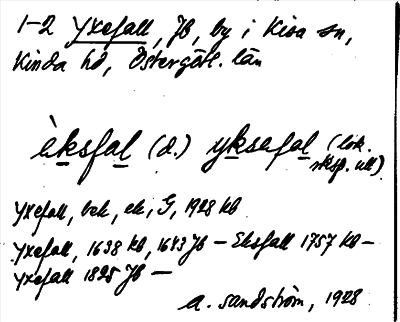 1-2 Yxefall, Jb, by i Kisa sn,
Kinda hd, Östergötl. län
èksfal (d.) yksefal (lok.
rksp. utt)
Yxefall, bek, ek, G, 1928 kb
Yxefall, 1638 kb, 1643 Jb - Eksfall 1757 kb -
Yxefall 1825 Jb -
A. Sandström, 1928